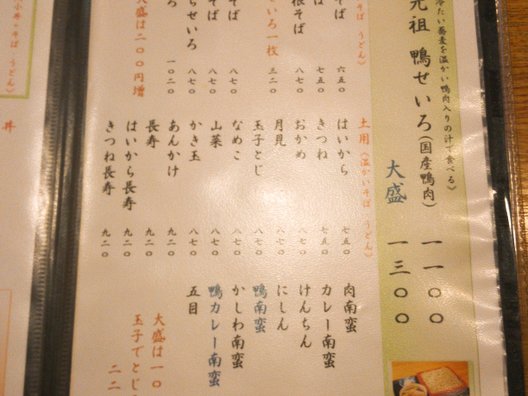 冷たい蕎麦を温かい鴨肉入りの汁で食べる〉
元祖 鴨せいろ(国産鴨肉) 一一〇〇
大盛 一三〇〇
そば うどん〉
そば 六五〇
七五〇
根そば 八七〇
せいろ一枚 三二〇
そば 八七〇
そば 八七〇
らせいろ 八七〇
ろ 一〇二〇
大盛は二〇〇円増
土用〈温かいそば うどん〉
はいから 七五〇
きつね 七五〇
おかめ 八七〇
月見
玉子とじ 八七〇
なめこ 八七〇
山菜 八七〇
かき玉 八七〇
あんかけ 九二〇
長寿 九二〇
はいから長寿
きつね長寿 九二〇
肉南蛮
カレー南蛮
けんちん
にしん
鴨南蛮
かしわ南蛮
鴨カレー南蛮
五目
大盛は一〇
玉子でとじ
二二
小丼+そば うどん〉
丼